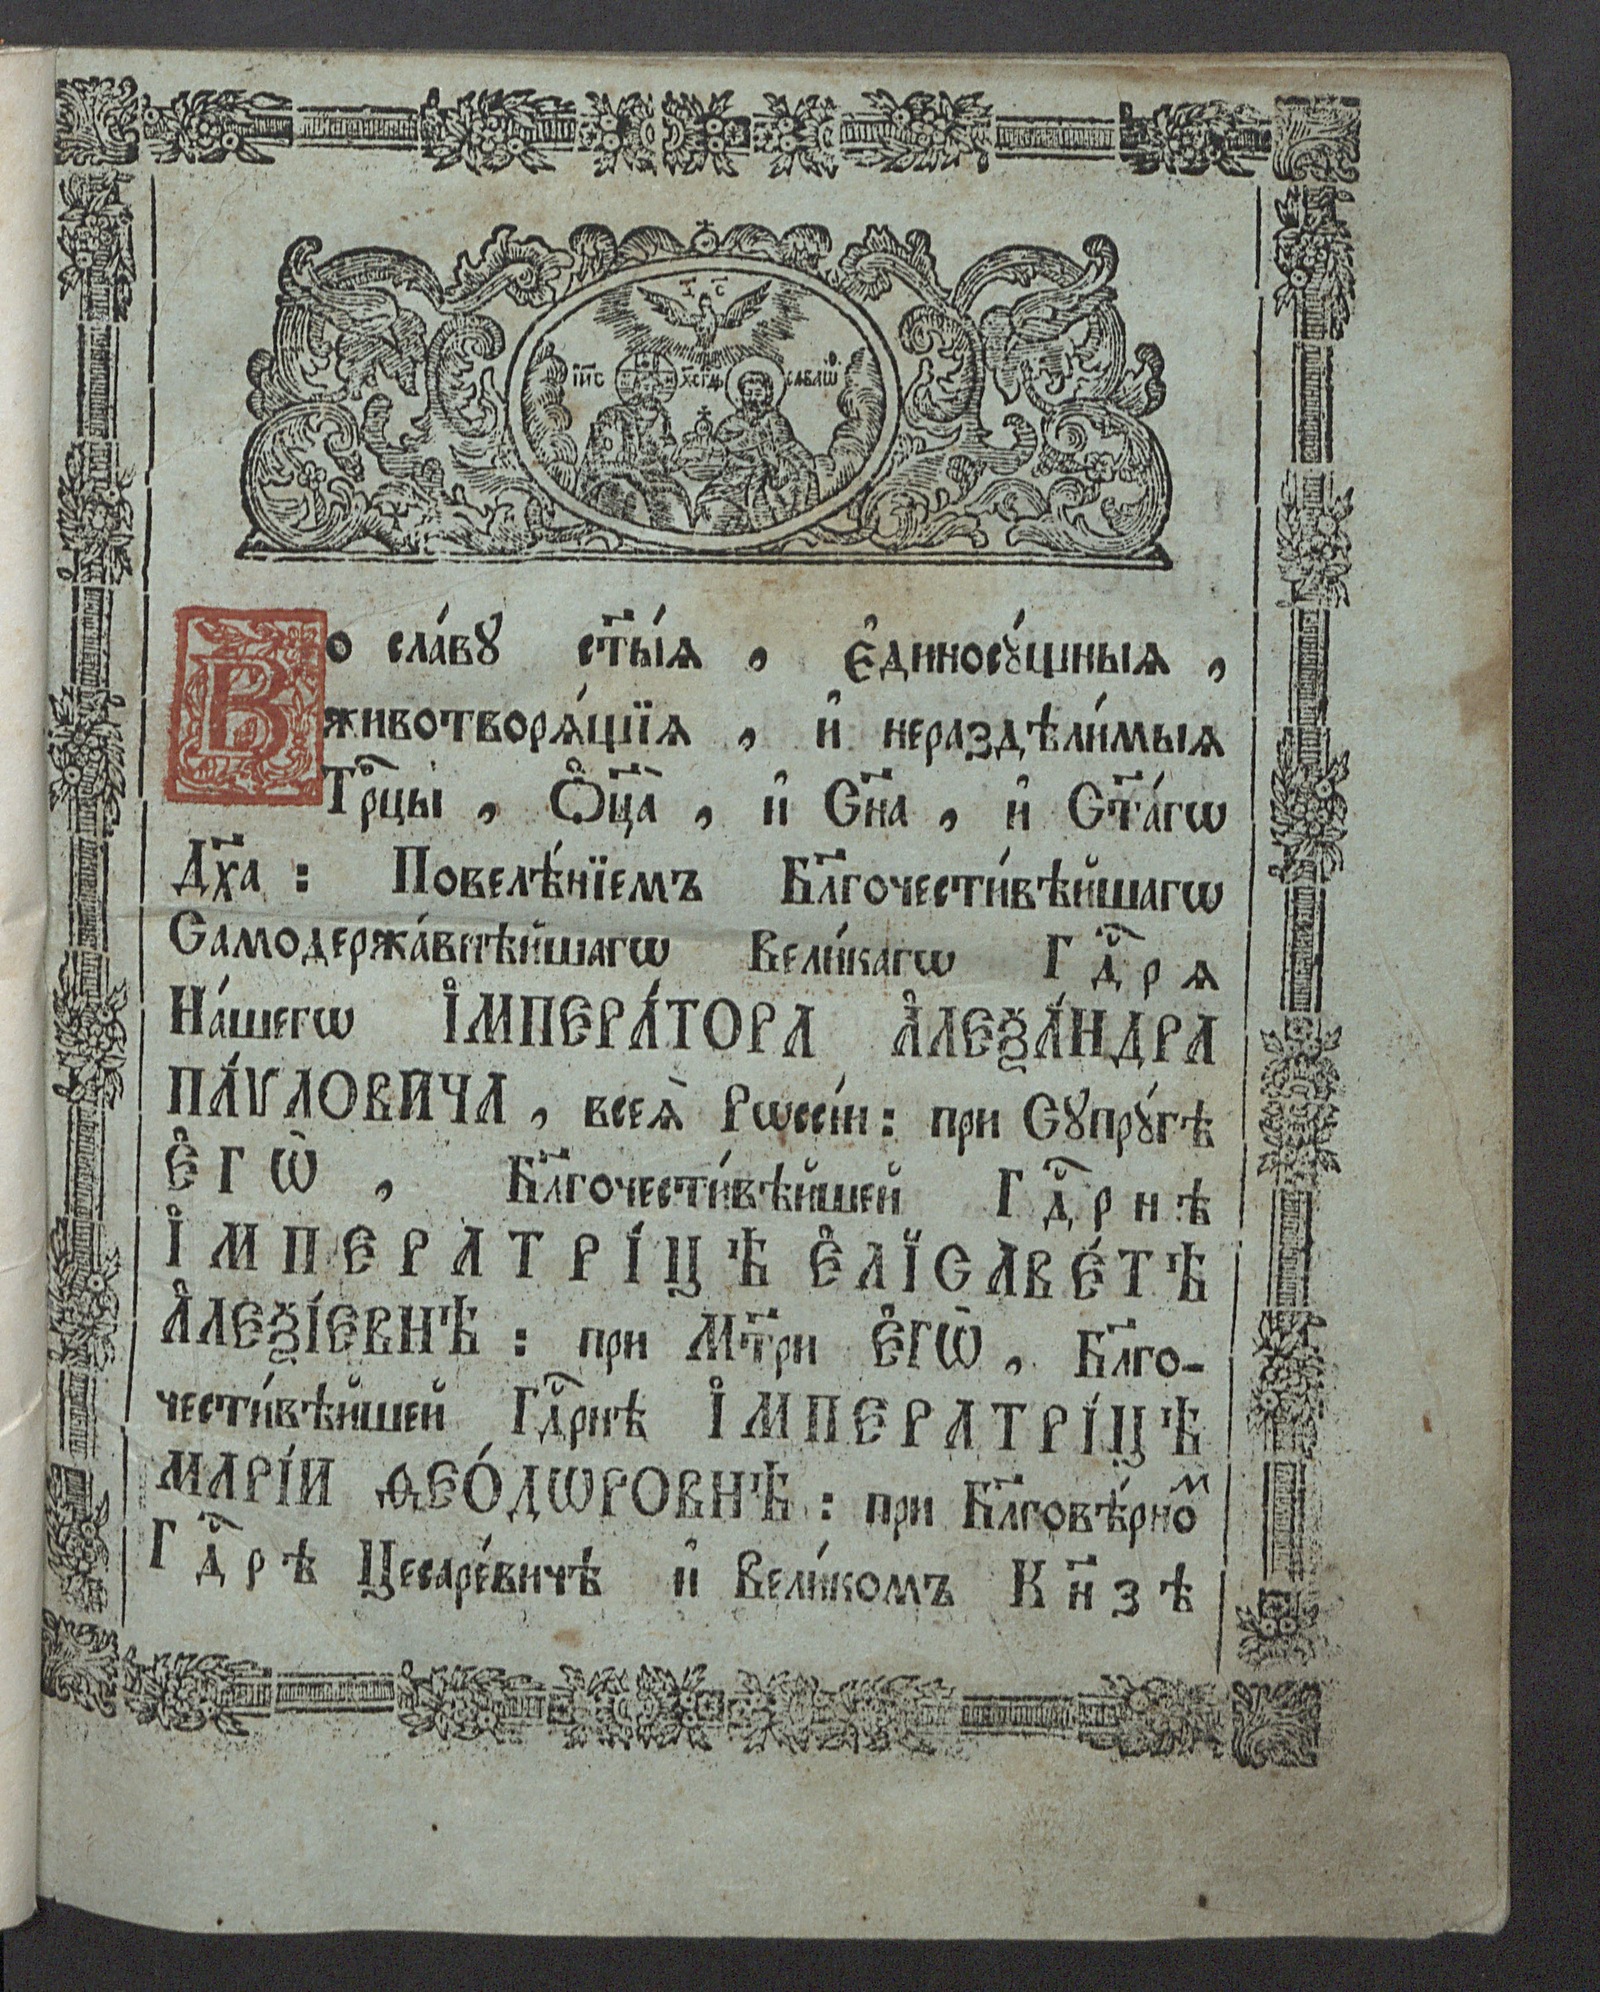 І҃С
І҆И҃С Х҃С ГД҃Ь САВАѠѲ.
Во сла́вꙋ ст҃ы́ѧ, є҆диносꙋ́щныѧ,
животворѧ́щїѧ, и҆ нераздѣли́мыѧ
Трⷪ҇цы, Ѻ҆ц҃а̀, и҆ Сн҃а, и҆ Ст҃а́гѡ
Дх҃а: Повелѣ́нїемъ Бл҃гочести́вѣйшагѡ
Самодержа́внѣйшагѡ Вели́кагѡ Гдⷭ҇рѧ
На́шегѡ І҆МПЕРА́ТОРА А҆ЛЕѮА́НДРА
ПА́ѴЛОВИЧА, всеѧ̀ Рѡссі́и: при Сꙋпрꙋ́гѣ
Е҆ГѠ̀, Бл҃гочести́вѣйшей Гдⷭ҇рнѣ
І҆МПЕРАТРІ́ЦѢ Е҆ЛІСАВЕ́ТѢ
А҆ЛЕѮІ́ЕВНѢ: при Мт҃ри Е҆ГѠ̀, Бл҃го-
чести́вѣйшей Гдⷭ҇рнѣ І҆МПЕРАТРІ́ЦѢ
МАРІ́И ѲЕО́ДѠРОВНѢ: при Бл҃говѣ́рноⷨ
Гдⷭ҇рѣ Цесаре́вичѣ и҆ Вели́комъ Кн҃зѣ